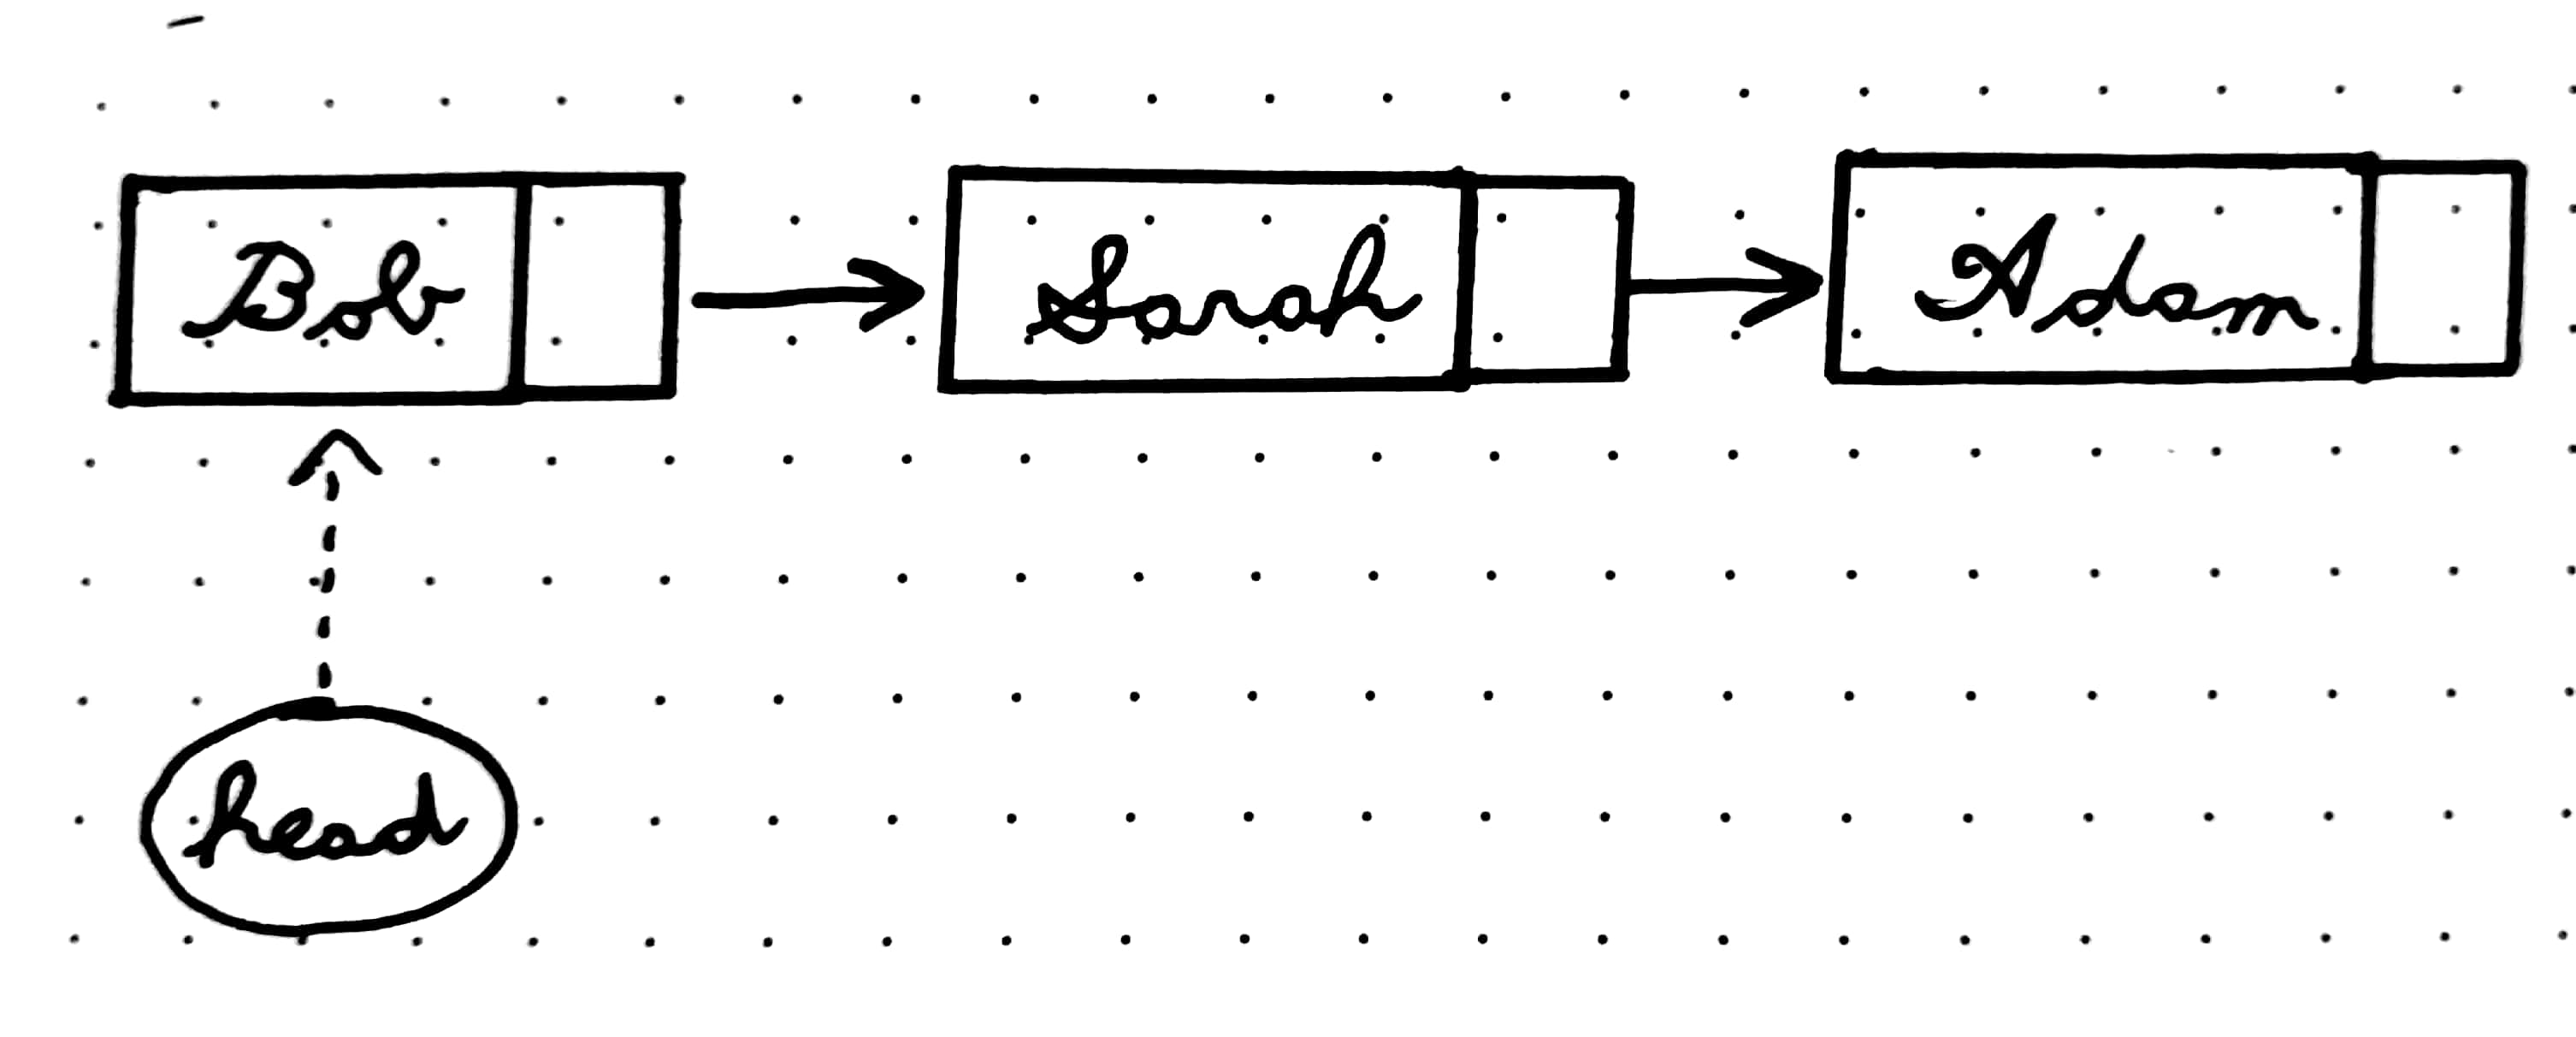 Bob Sarah Adam
head